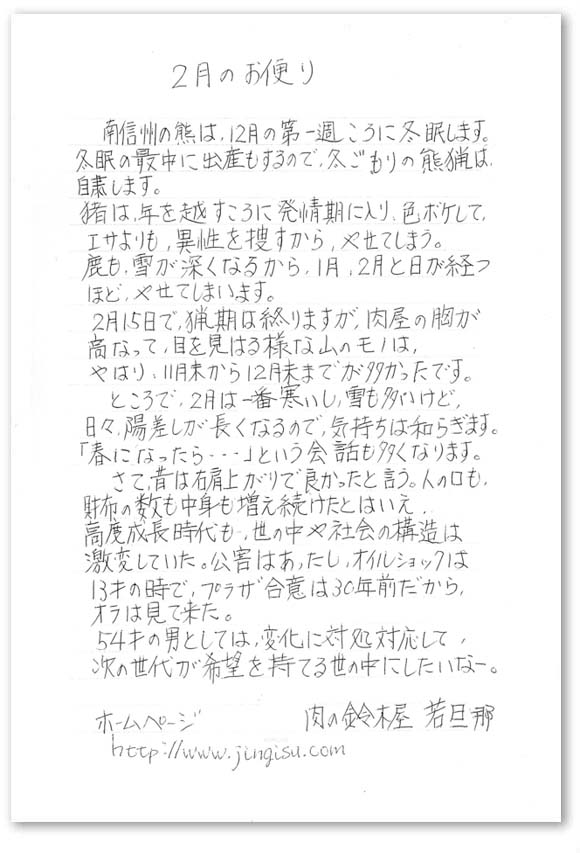 2月のお便り
南信州の熊は、12月の第一週ころに冬眠します。
冬眠の最中に出産もするので、冬ごもりの熊猟は、
自粛します。
猪は、年を越すころに発情期に入り、色ボケして、
エサよりも、異性を捜すから、ヤセてしまう。
鹿も、雪が深くなるから、1月、2月と日が経つ
ほど、ヤセてしまいます。
2月15日で、猟期は終りますが、肉屋の胸が
高なって、目を見はる様な山のモノは、
やはり、11月末から12月末までが多かったです。
ところで、2月は一番寒いし、雪も多いけど、
日々、陽差しが長くなるので、気持ちは和らぎます。
「春になったら・・・」という会話も多くなります。
さて、昔は右肩上がりで良かったと言う。人の口も、
財布の数も中身も増え続けたとはいえ、
高度成長時代も、世の中や社会の構造は
激変していた。公害はあったし、オイルショックは
13才の時で、プラザ合意は30年前だから、
オラは見て来た。
54才の男としては、変化に対処対応して、
次の世代が希望を持てる世の中にしたいなー。
肉の鈴木屋 若旦那
ホームページ
http://www.jingisu.com